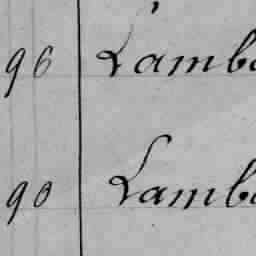 96 Lamb
90 Lamb